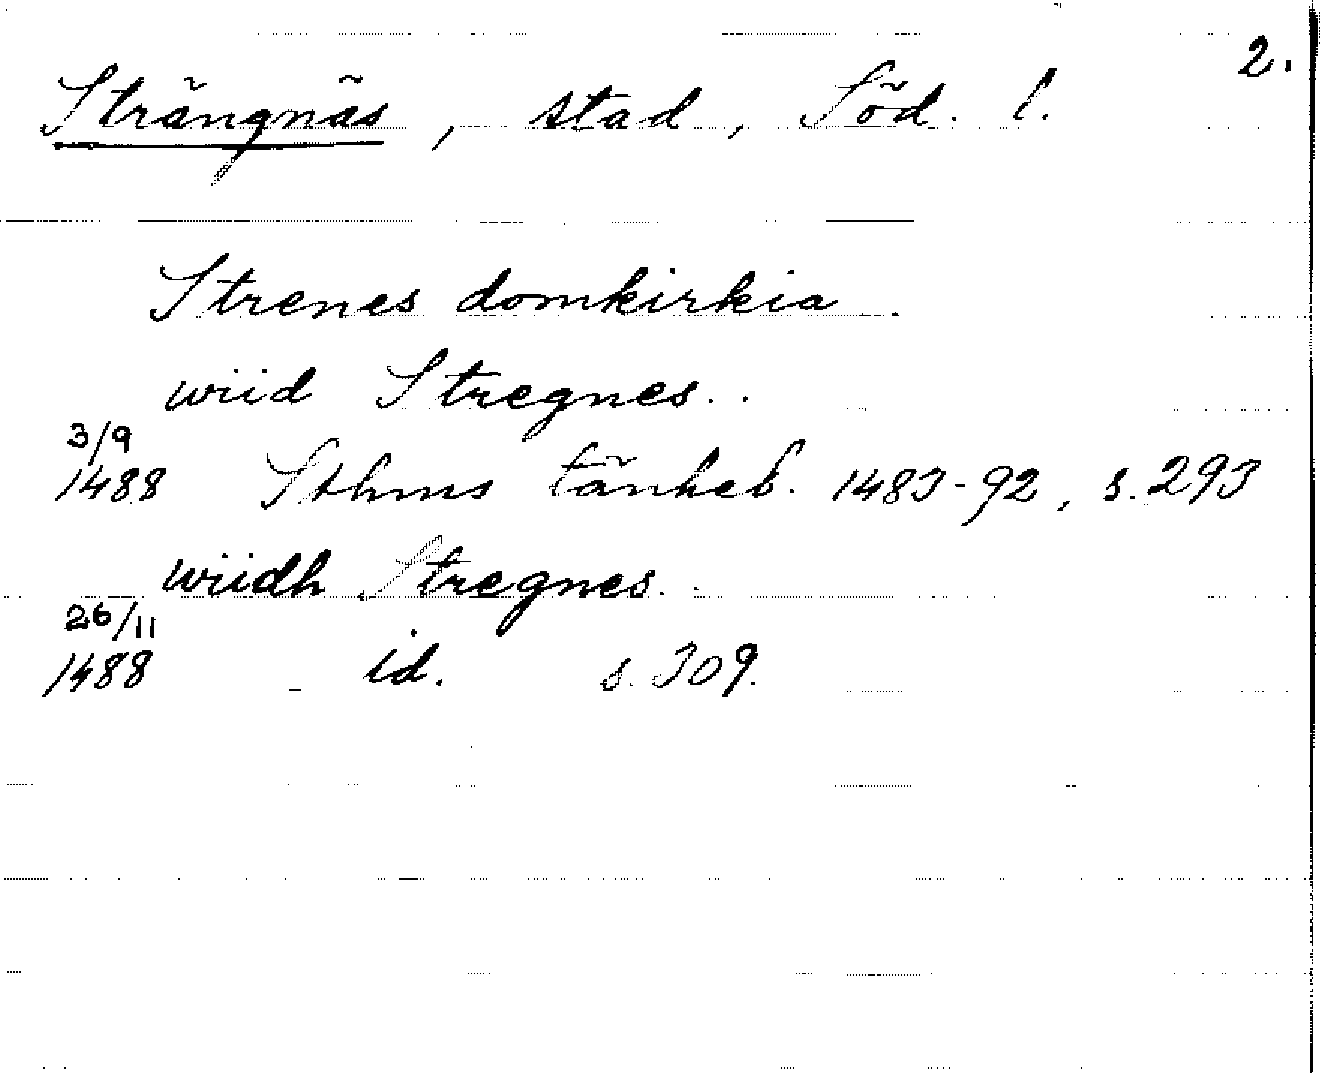 2.
Strängnäs, stad, Söd. l.
Strenes domkirkia
wiid Stregnes..
3/9
1488 Sthms tänkeb. 1483-92, s. 293
wiidh Stregnes.
26/11
1488 id. s. 309.